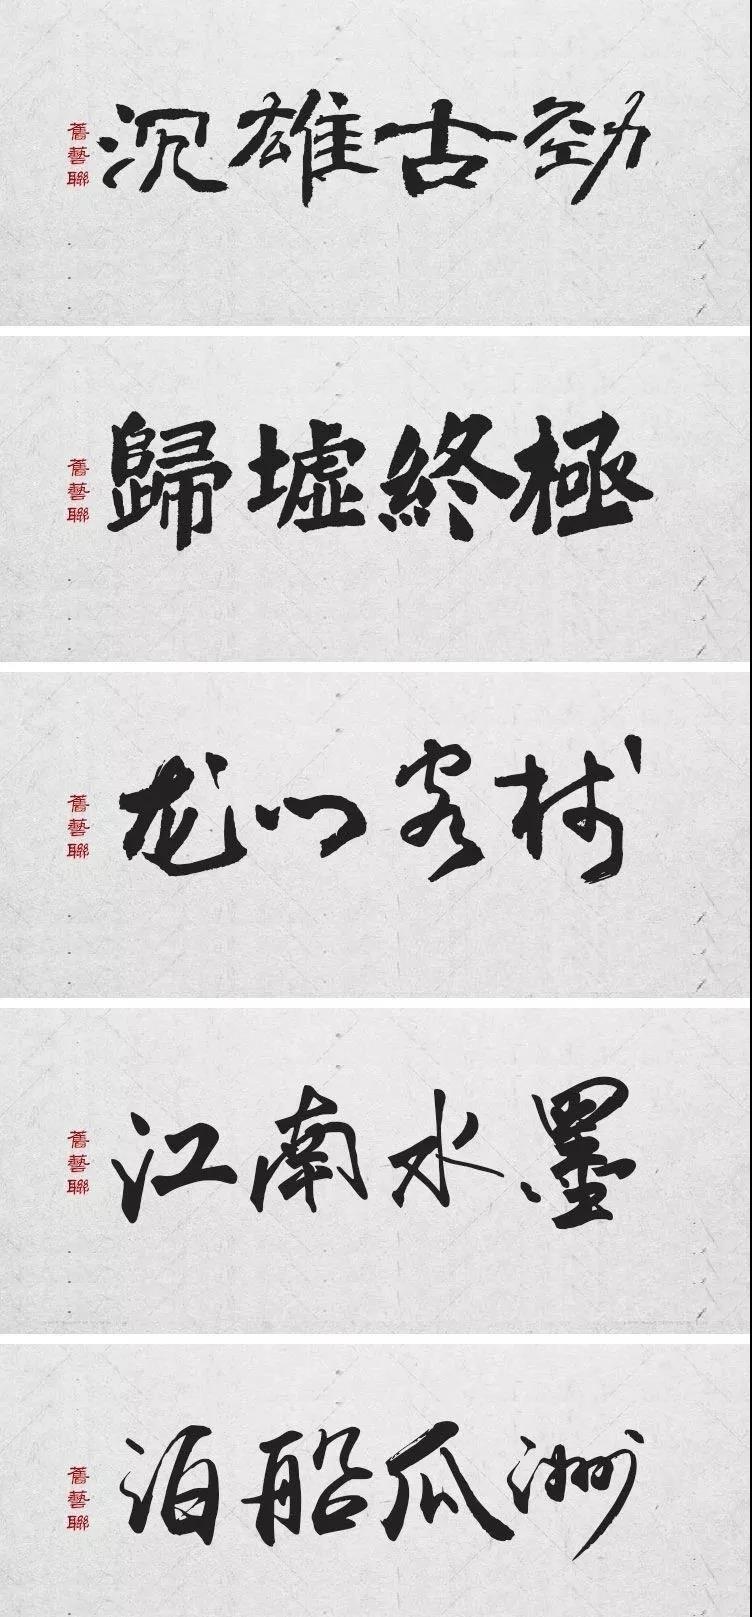 舊藝聯
沉雄古劲
舊藝聯
歸墟終極
舊藝聯
龙门客栈
舊藝聯
江南水墨
舊藝聯
泊船瓜洲